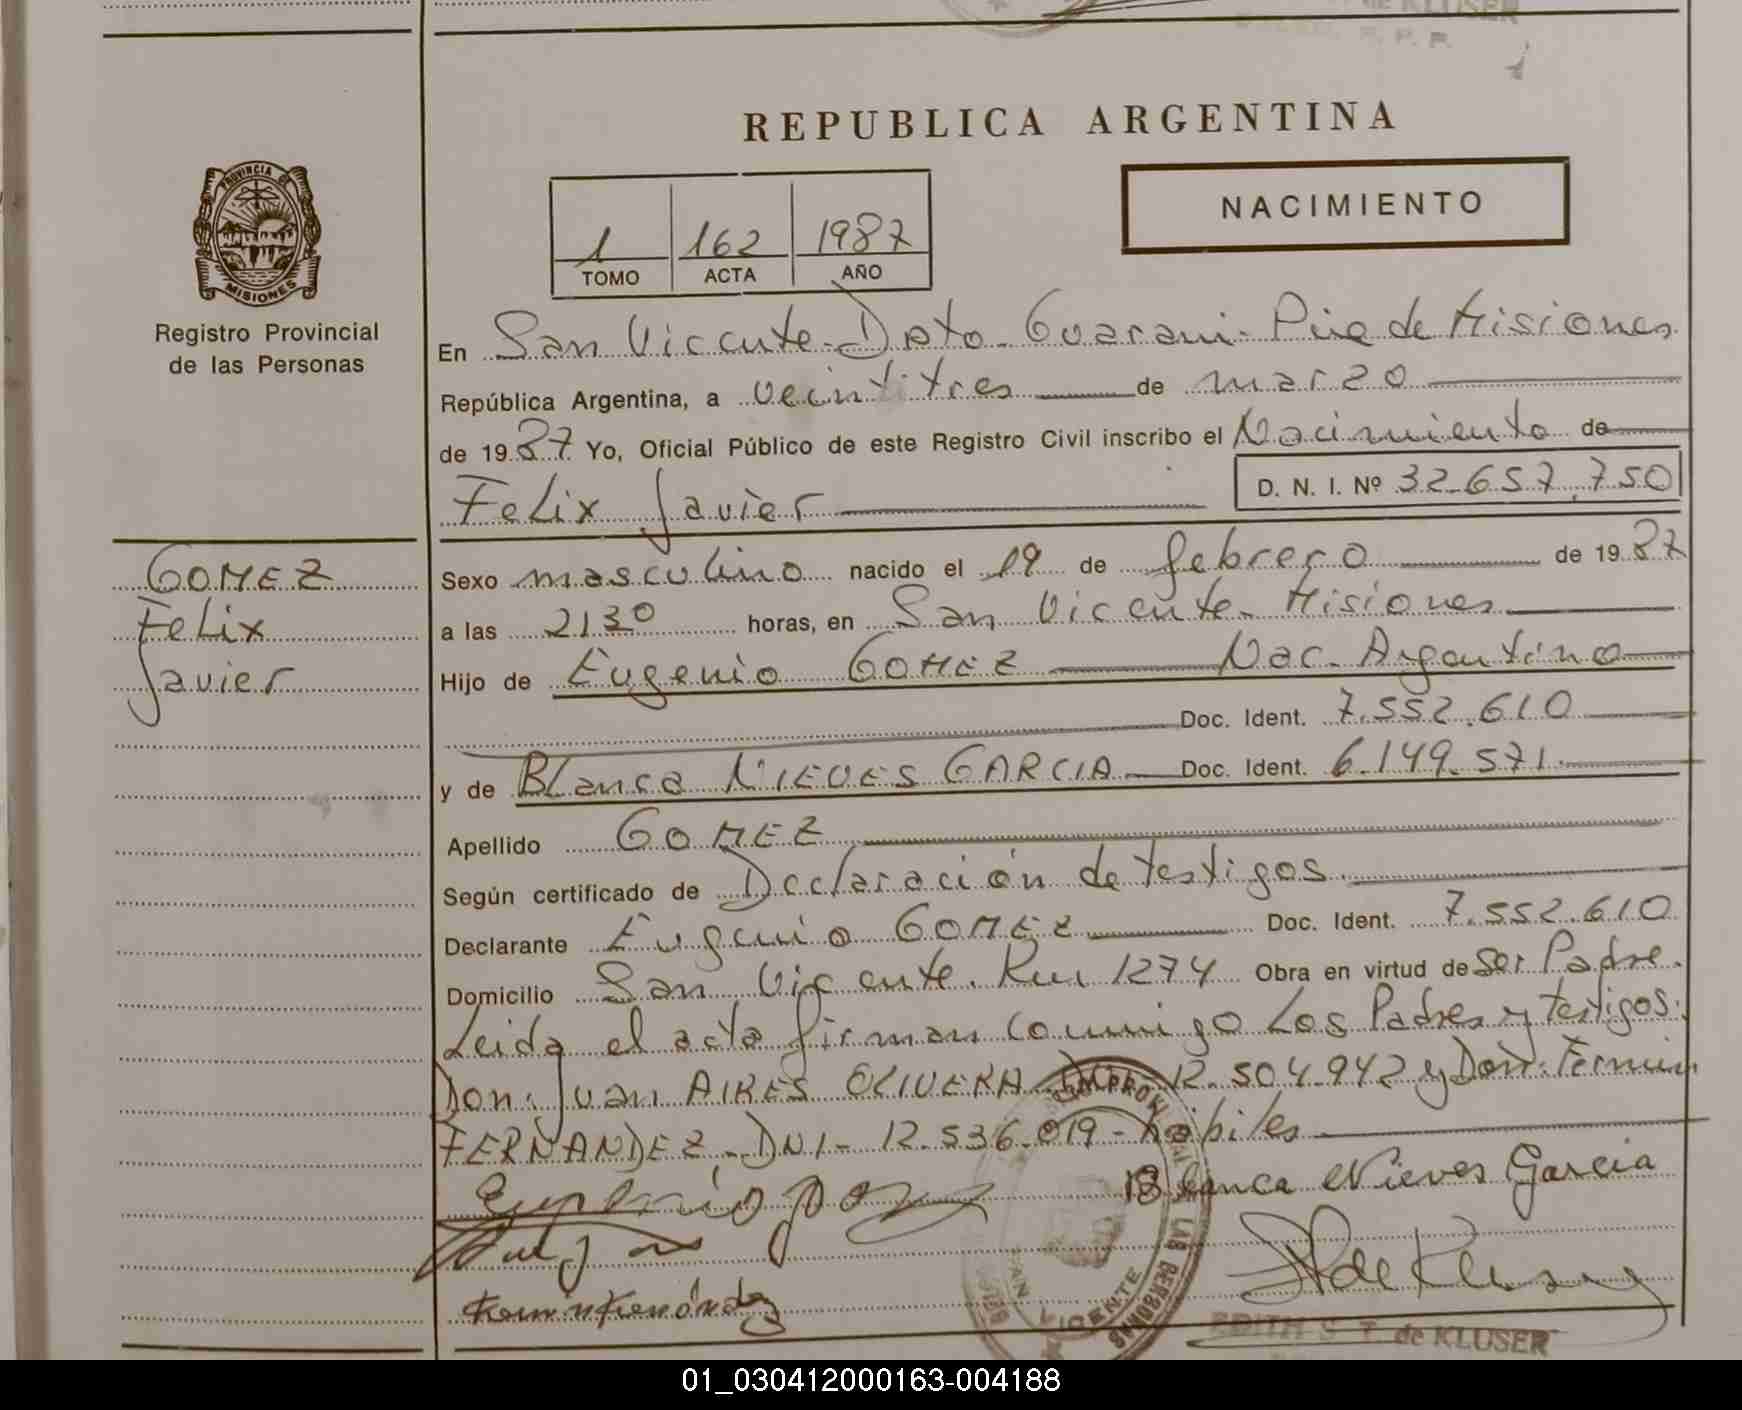 de KLUSER
REPUBLICA ARGENTINA
PROVINCIA DE
MISIONES
Registro Provincial
de las Personas
1 162 1987
TOMO ACTA AÑO
NACIMIENTO
En San Vicente - Dpto Guarani - Pcia de Misiones
República Argentina, a veintitres de marzo
de 1987 Yo, Oficial Público de este Registro Civil inscribo el Nacimiento de
Felix Javier D. N. I. Nº 32.657.750
GOMEZ
Felix
Javier
Sexo masculino nacido el 19 de febrero de 1987
a las 2130 horas, en San Vicente - Misiones
Hijo de Eugenio GOMEZ Nac. Argentino
Doc. Ident. 7.552.610
y de Blanca NIEVES GARCIA Doc. Ident. 6.149.571
Apellido GOMEZ
Según certificado de Declaración de testigos
Declarante Eugenio GOMEZ Doc. Ident. 7.552.610
Domicilio San Vicente. Km 1274 Obra en virtud de ser Padre.
Leida el acta firman conmigo Los Padres y testigos:
Don: Juan AIRES OLIVERA 12.504.942 y Don: Fermin
FERNANDEZ - DNI - 12.536.019 - habiles
Blanca Nieves Garcia
EDITH S. T. de KLUSER
01_030412000163-004188